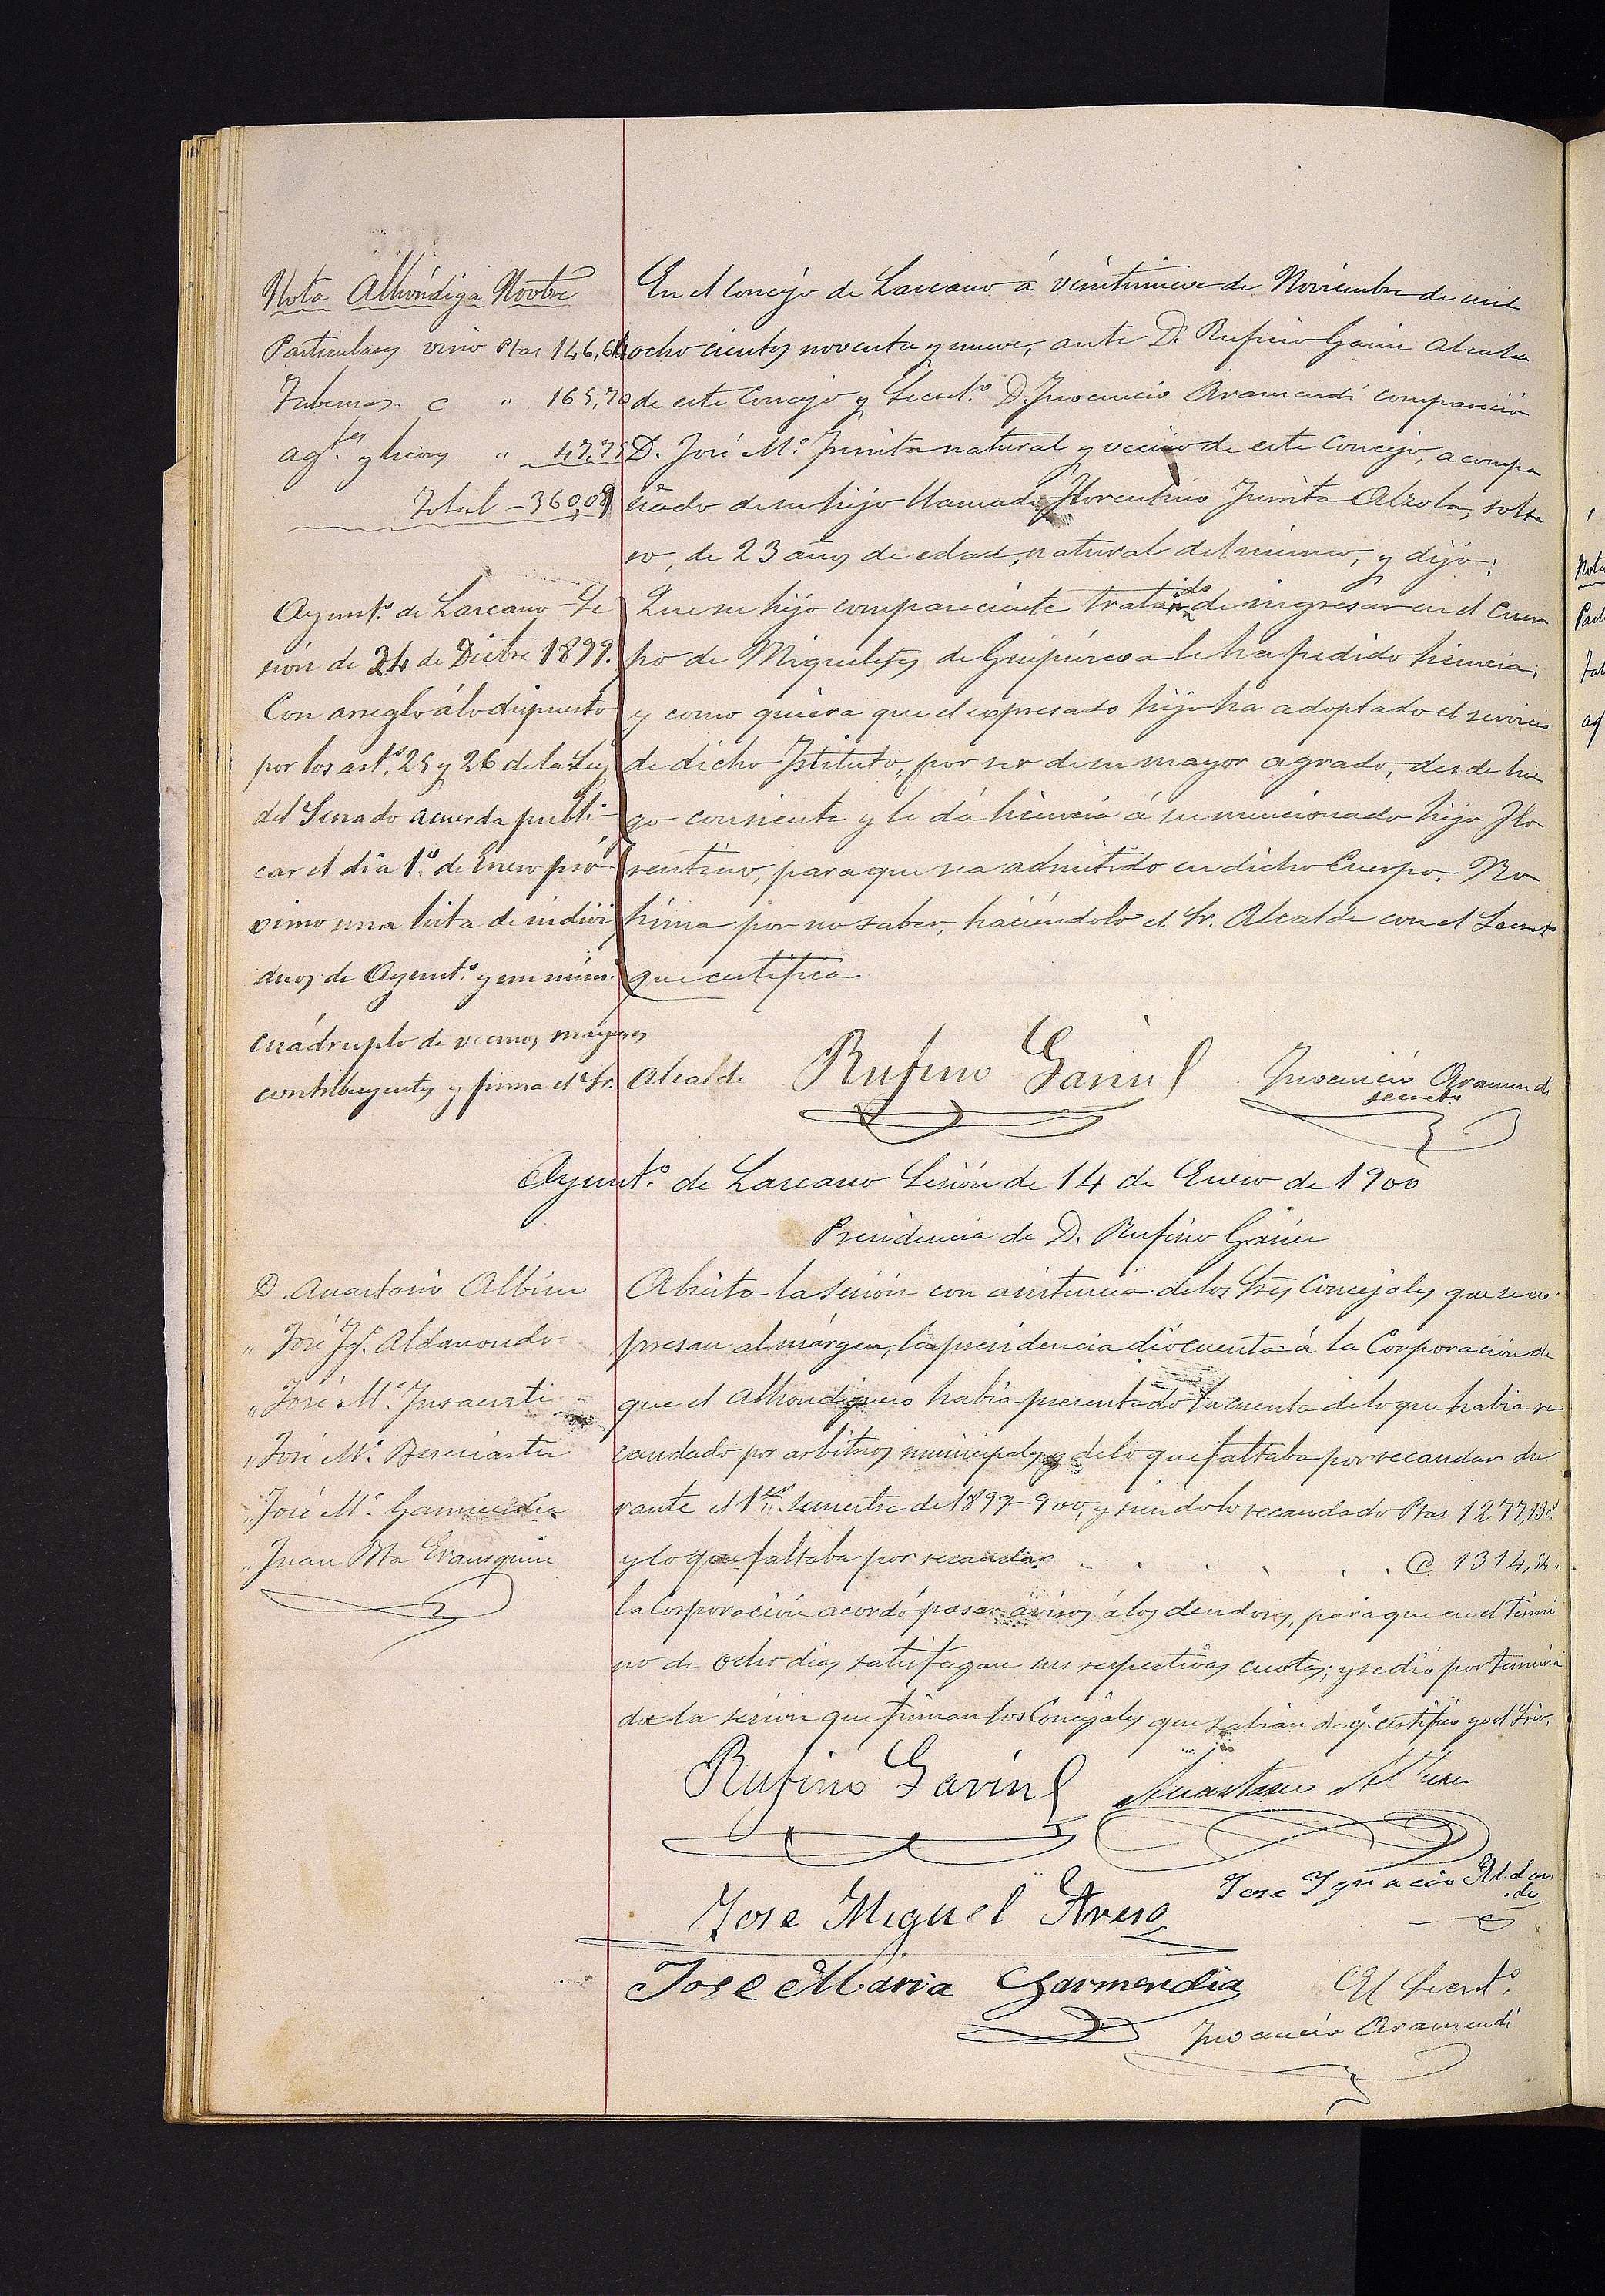 Nota Alhóndiga Novbre
Particulares vino Ptas 146,64
Tabernas c " 165,70
agtes y licores " 47,75
Total - 360,09
En el Concejo de Lazcano á veintinueve de Noviembre de mil
ochocientos noventa y nueve, ante D. Rufino Garin Alcalde
de este Concejo y Secret.º D. Inocencio Aramendi compareció
D. José M.ª Iruista natural y vecino de este Concejo, acompa
ñado de su hijo llamado Florentino Alzola, solte
ro, de 23 años de edad, natural del mismo, y dijo:
Que su hijo compareciente de ingresar en el Cuer
po de Migueletes de Guipúzcoa le ha pedido licencia;
y como quiera que el expresado hijo ha adoptado el servicio
de dicho Istituto, por ser de su mayor agrado, desde lue
go consiente y le dá licencia á su mencionado hijo Flo
rentino, para que sea admitido en dicho Cuerpo. No
firma por no saber, haciéndolo el Sr. Alcalde con el Secret.º
que certifica
Ayunt.º de Lazcano Se
sión de 24 de Dicbre 1899.
Con arreglo á lo dispuesto
por los art.s 25 y 26 de la Ley
del Senado acuerda publi-
car el día 1.º de Enero pró
ximo una lista de indivi
duos de Ayunt.º y un núm.º
cuádruplo de vecinos mayores
contribuyentes y firma el Sr. Alcalde
Rufino Garin
Inocencio Aramendi
secreto
Ayunt.º de Lazcano Sesión de 14 de Enero de 1900
Presidencia de D. Rufino Garin
D. Anastasio Albisu
" José Ig.º Aldanondo
" José M.ª Insausti
" José M.ª Bereciartu
" José M.ª Garmendia
" Juan Bta Erausquin
Abierta la sesión con asistencia de los Sres Concejales que se ex
presan al márgen, la presidencia dió cuenta á la Corporación de
que el Alhondiguero había presentado la cuenta de lo que habia re
caudado por arbitrios municipales y de lo que faltaba por recaudar du
rante el 1er semestre de 1899-900, y siendo lo recaudado Ptas 1277,13 c.
y lo que faltaba por recaudar . . . . . @ 1314,54 "
la Corporación acordó pasar avisos á los deudores, para que en el térmi
no de ocho dias satisfagan sus respectivas cuotas; y se dió por termina
da la sesión que firman los Concejales que sabian de q.e certifico yo el Srio.
Rufino Garin
Anastasio Albisu
Jose Ignacio Aldanon
do
Jose Miguel
Jose Maria Garmendia
El Secret.º
Inocencio Aramendi
Nota
Part
Tab
ag